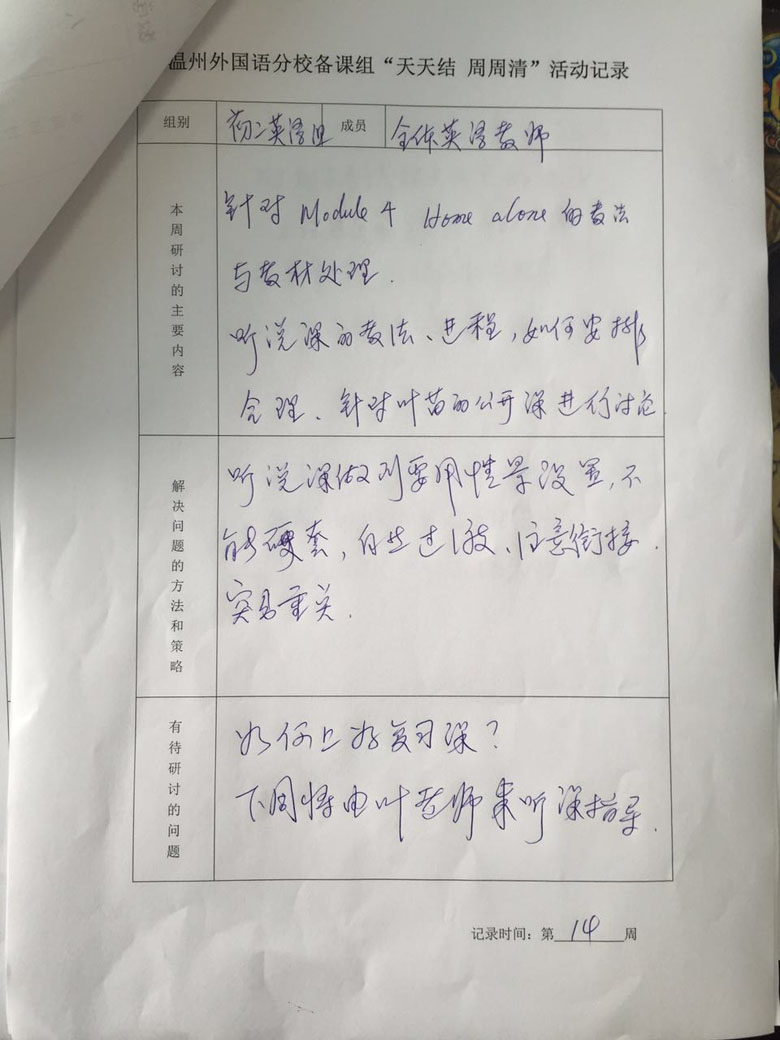 温州外国语分校备课组“天天结 周周清”活动记录
组别 初二英语组 成员 全体英语教师
本周研讨的主要内容
针对 Module 4 Home alone 的教法
与教材处理.
听说课的教法、进程,如何安排
合理、针对叶苗的公开课进行讨论.
解决问题的方法和策略
听说课做到要用情景设置,不
能硬套,自然过渡、注意衔接.
突出重点.
有待研讨的问题
如何上好复习课?
下周将由叶老师来听课指导.
记录时间:第 14 周